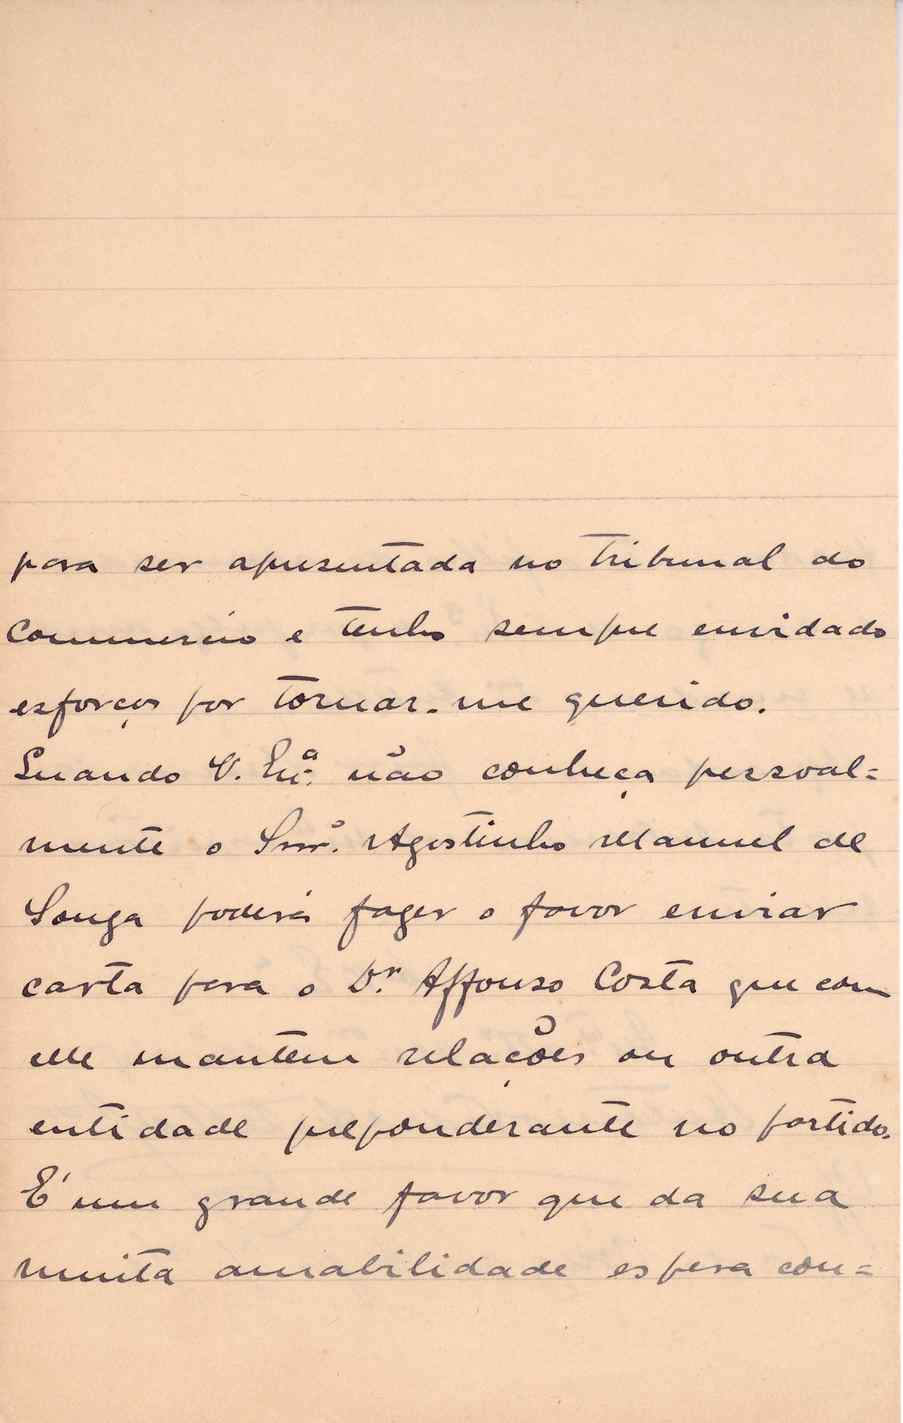 para ser apresentada no Tribunal do
Commercio e tenho sempre envidado
esforços por tornar-me querido.
Quando V. Exª não conheça pessoal=
mente o Snr. Agostinho Manuel de
Souza poderá fazer o favor enviar
carta para o Dr. Affonso Costa que com
elle mantem relações ou outra
entidade preponderante no partido.
É um grande favor que da sua
muita amabilidade espera con=